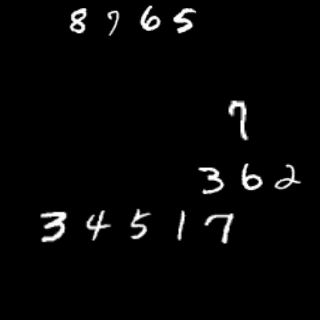 8765
7
362
34517